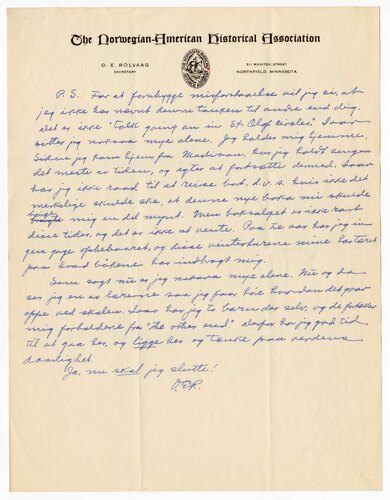 The Norwegian-American Historical Association
O. E. RÖLVAAG
SECRETARY
311 MANITOU STREET
NORTHFIELD, MINNESOTA
P.S. For at forebygge misforstaaelse vil jeg si, at
jeg ikke har nævnt denne tanken til andre end dig.
Det er ikke "talk going on in St. Olaf circles." I aar
sitter jeg nokaara mye alene. Jeg holder mig hjemme.
Siden jeg kom hjem fra Madison, har jeg holdt sengen
det meste av tiden, og agter at fortsætte dermed. I aar
har jeg ikke raad til at reise bort, d.v.s. huis ikke det
merkelige skulde ske, at denne nye boka mi skulde
bringe mig en del mynt. Men boksalget er ikke rart
disse tider, og det er ikke at vente. Paa to aar har jeg in-
gen gage oppebaaret, og disse vinterturene mine har tæret
paa hvad bøkene har indbragt mig.
Som sagt nu er jeg nokaara mye alene. Nu og da
ser jeg en av lærerne saa jeg faar høre hvordan det gaar
oppe ved skolen. I aar har jeg to barn der selv, og de fortæller
mig forholdene fra "the other end." derfor har jeg god tid
til at gaa her, og ligge her og tænke paa verdens
daarlighet.
Ja, nu skal jeg slutte!
O.E.R.